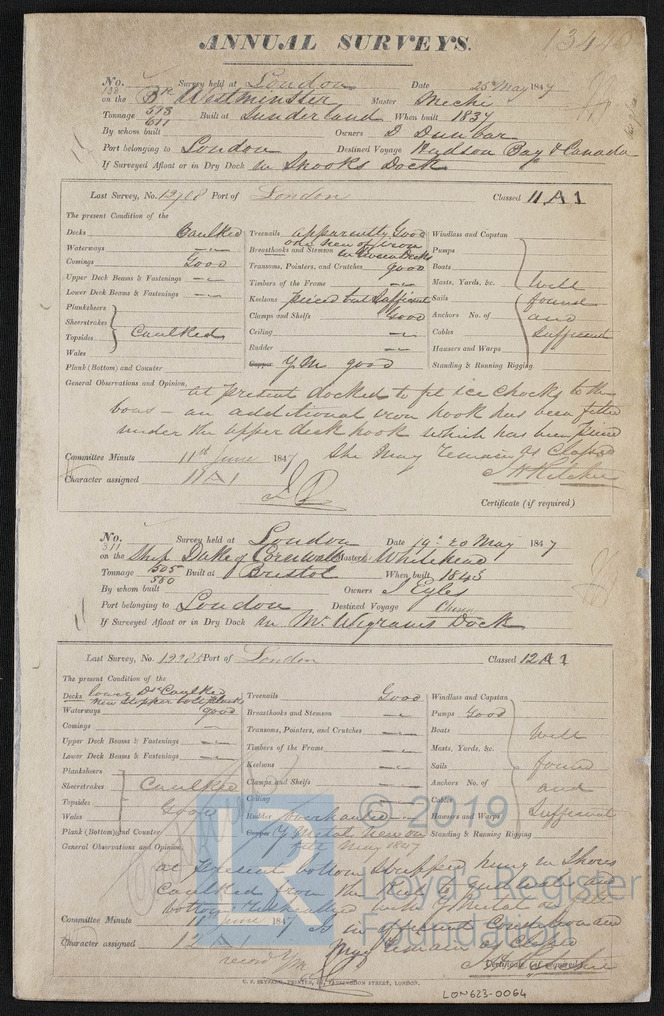 ANNUAL SURVEYS.
No. 138 Survey held at London Date 25 May 1847
on the Bk Westminster Master Michie
Tonnage 573 611 Built at Sunderland When built 1837
By whom built Owners D Dunbar
Port belonging to London Destined Voyage Hudson Bay & Canada
If Surveyed Afloat or in Dry Dock in Snooks Dock
Last Survey, No. 12708 Port of London Classed 11 A 1
The present Condition of the
Decks Caulked
Waterways
Comings Good
Upper Deck Beams & Fastenings
Lower Deck Beams & Fastenings
Planksheers
Sheerstrakes
Topsides
Wales
Caulked
Plank (Bottom) and Counter
Treenails apparently Good
Breasthooks and Stemson one new of iron
Transoms, Pointers, and Crutches good
Timbers of the Frame
Keelsons pieced but Sufficient
Clamps and Shelfs Good
Ceiling
Rudder
Copper Y.M. good
Windlass and Capstan
Pumps
Boats
Masts, Yards, &c.
Sails
Anchors No. of
Cables
Hausers and Warps
Standing & Running Rigging
Well found and Sufficient
General Observations and Opinion, at present docked to fit ice chocks to the
bows - an additional iron hook has been fitted
under the upper deck hook which has been pieced
She May remain as Classed
Committee Minute 11th June 1847
Character assigned 11 A 1
Certificate (if required)
No. 311 Survey held at London Date 19 & 20 May 1847
on the Ship Duke of Cornwall Master Whitehead
Tonnage 505 580 Built at Bristol When built 1843
By whom built Owners J Eyles
Port belonging to London Destined Voyage China
If Surveyed Afloat or in Dry Dock in Mr Wigrams Dock
Last Survey, No. 12985 Port of London Classed 12 A 1
The present Condition of the
Decks lower Dk Caulked
Waterways good
Comings
Upper Deck Beams & Fastenings
Lower Deck Beams & Fastenings
Planksheers
Sheerstrakes
Topsides
Wales
Caulked
Good
Plank (Bottom) and Counter
Treenails Good
Breasthooks and Stemson
Transoms, Pointers, and Crutches
Timbers of the Frame
Keelsons
Clamps and Shelfs
Ceiling
Rudder overhauled
Copper Y Metal new on
felt May 1847
Windlass and Capstan
Pumps Good
Boats
Masts, Yards, &c.
Sails
Anchors No. of
Cables
Hausers and Warps
Standing & Running Rigging
Well found and Sufficient
General Observations and Opinion,
at present bottom stripped hung in Shores
Caulked from the Keel to gunwale and
bottom Y Metal
is in efficient Condition and
May remain as Classed
Committee Minute 11 June 1847
Character assigned 12 A 1
record Y.M.
Certificate (if required)
LON623-0064
© 2019
Lloyd's Register
Foundation
R